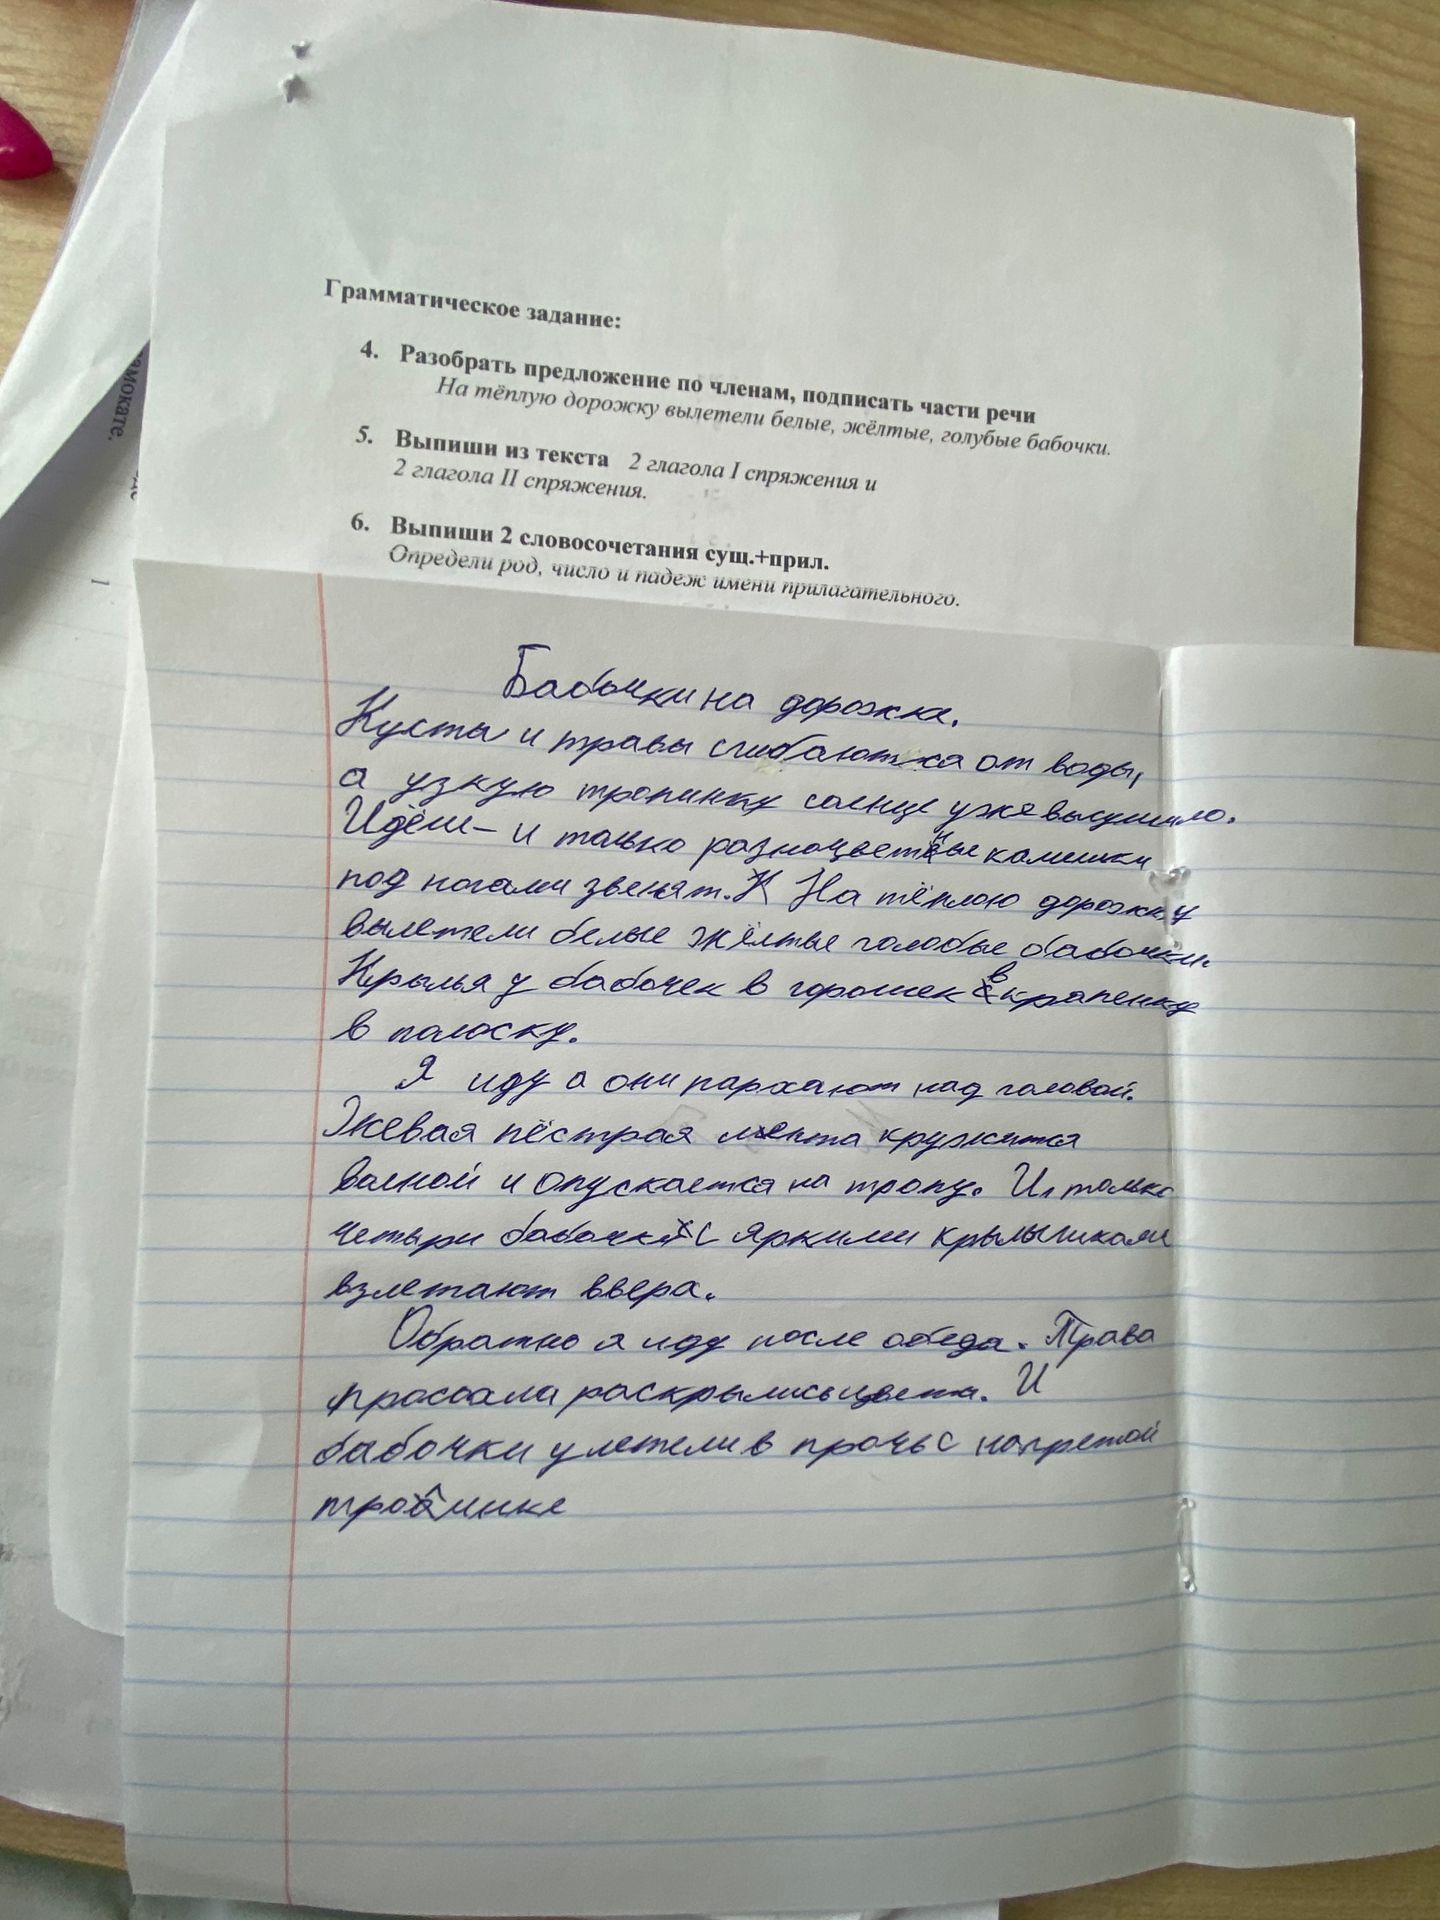 Грамматическое задание:
4. Разобрать предложение по членам, подписать части речи
На тёплую дорожку вылетели белые, жёлтые, голубые бабочки.
5. Выпиши из текста 2 глагола I спряжения и
2 глагола II спряжения.
6. Выпиши 2 словосочетания сущ.+прил.
Определи род, число и падеж имени прилагательного.
амокате.
Бабочки на дорожке.
Кусты и травы сгибаются от воды,
а узкую тропинку солнце уже высушило.
Идёш – и только разноцветные камишки
под ногами звенят. На тёплою дорожку
вылетели белые жёлтые голобые бабочки.
Крылья у бабочек в горошек в крапенку
в полоску.
Я иду а они пархают над головой.
Жевая пёстрая лента кружится
волной и опускается на тропу. И, только
четыри бабочки с яркими крылышками
взлетают вверх.
Обратно я иду после обеда. Трава
просохла раскрылись цветы. И
бабочки улетели в прочь с нагретой
тропинке